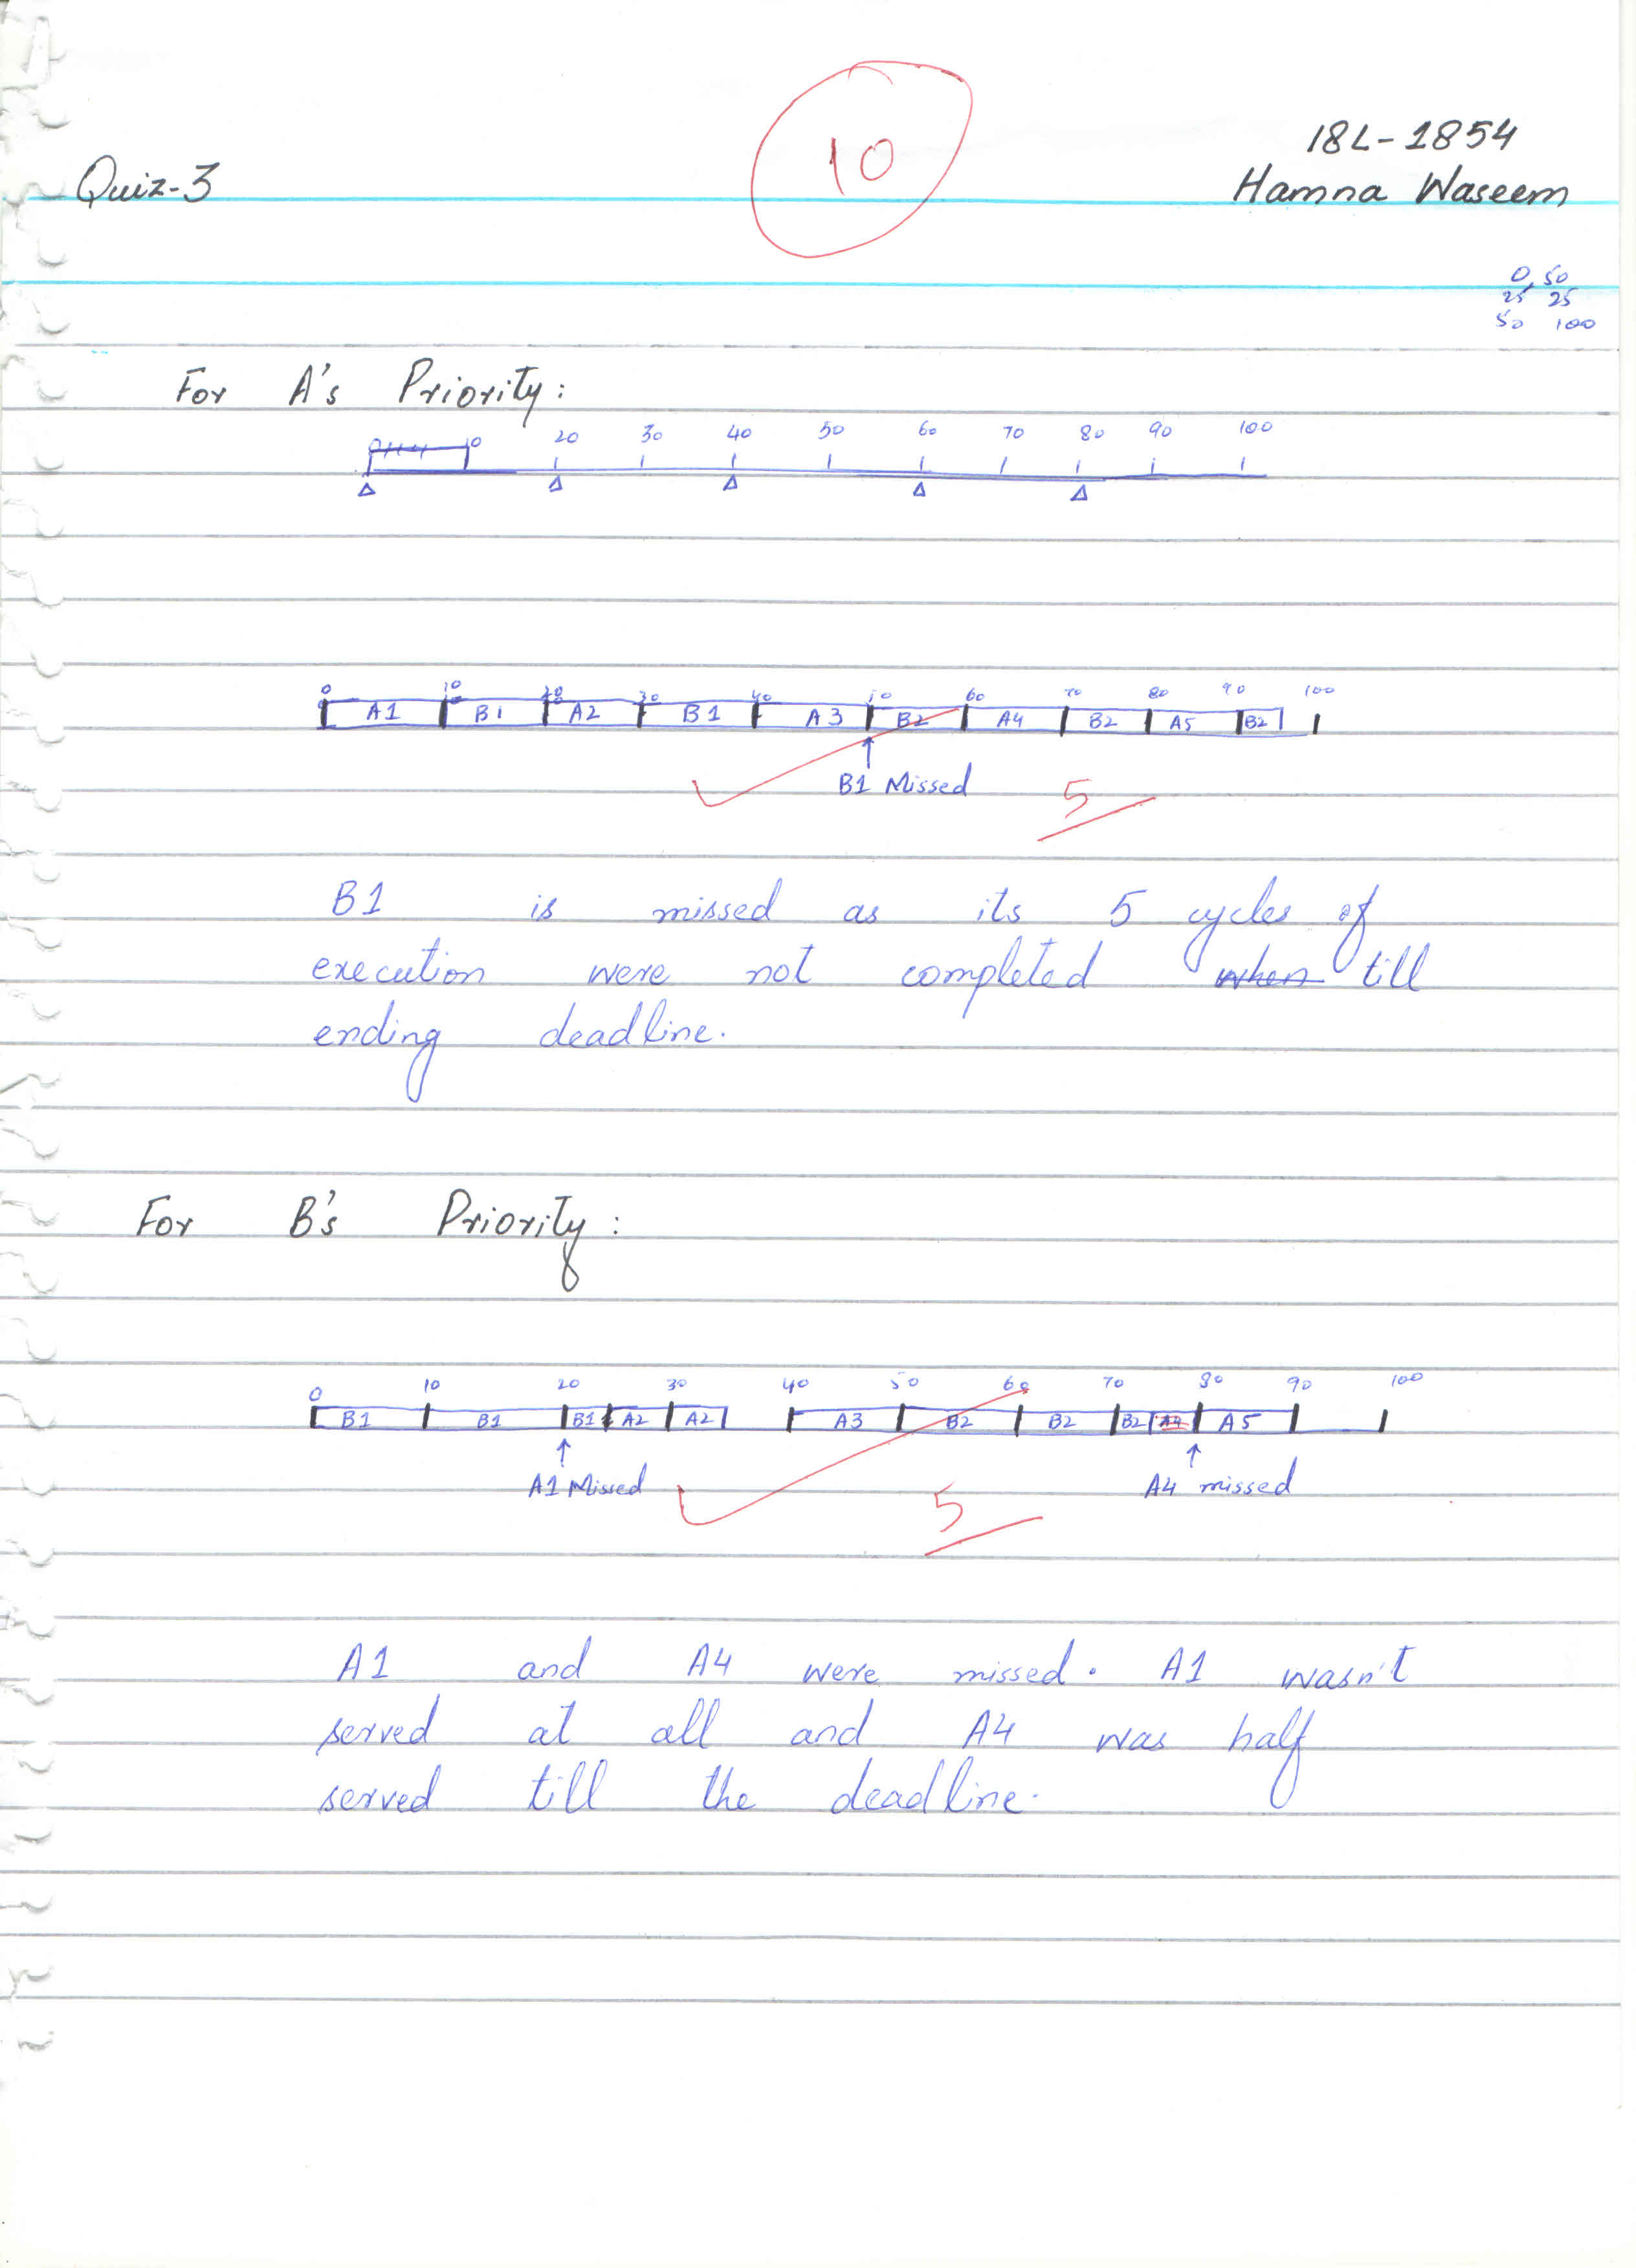 10
18L-1854
Quiz-3
Hamna Waseem
0, 50
25 25
50 100
For A's Priority:
20 30 40 50 60 70 80 90 100
0 10 20 30 40 50 60 70 80 90 100
A1 B1 A2 B1 A3 B2 A4 B2 A5 B2
B1 Missed
5
B1 is missed as its 5 cycles of
execution were not completed when till
ending deadline.
For B's Priority:
0 10 20 30 40 50 60 70 80 90 100
B1 B1 B1 A2 A2 A3 B2 B2 B2 A4 A5
A1 Missed A4 missed
5
A1 and A4 were missed. A1 wasn't
served at all and A4 was half
served till the deadline.